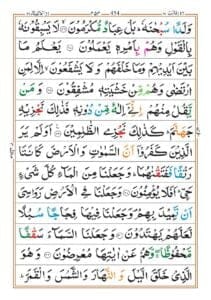 وَلَدًا سُبْحٰنَهٗ ؕ بَلْ عِبَادٌ مُّكْرَمُوْنَ ۙ لَا يَسْبِقُوْنَهٗ
بِالْقَوْلِ وَهُمْ بِاَمْرِهٖ يَعْمَلُوْنَ يَعْلَمُ مَا
بَيْنَ اَيْدِيْهِمْ وَمَا خَلْفَهُمْ وَلَا يَشْفَعُوْنَ ۙ اِلَّا لِمَنِ
ارْتَضٰى وَهُمْ مِّنْ خَشْيَتِهٖ مُشْفِقُوْنَ وَمَنْ
يَّقُلْ مِنْهُمْ اِنِّيْۤ اِلٰهٌ مِّنْ دُوْنِهٖ فَذٰلِكَ نَجْزِيْهِ
جَهَنَّمَ ؕ كَذٰلِكَ نَجْزِي الظّٰلِمِيْنَ اَوَلَمْ يَرَ
الَّذِيْنَ كَفَرُوْۤا اَنَّ السَّمٰوٰتِ وَالْاَرْضَ كَانَتَا
رَتْقًا فَفَتَقْنٰهُمَا ؕ وَجَعَلْنَا مِنَ الْمَآءِ كُلَّ شَيْءٍ
حَيٍّ ؕ اَفَلَا يُؤْمِنُوْنَ وَجَعَلْنَا فِي الْاَرْضِ رَوَاسِيَ
اَنْ تَمِيْدَ بِهِمْ وَجَعَلْنَا فِيْهَا فِجَاجًا سُبُلًا
لَّعَلَّهُمْ يَهْتَدُوْنَ وَجَعَلْنَا السَّمَآءَ سَقْفًا
مَّحْفُوْظًا ۚ وَّهُمْ عَنْ اٰيٰتِهَا مُعْرِضُوْنَ وَهُوَ
الَّذِيْ خَلَقَ الَّيْلَ وَالنَّهَارَ وَالشَّمْسَ وَالْقَمَرَ ؕ